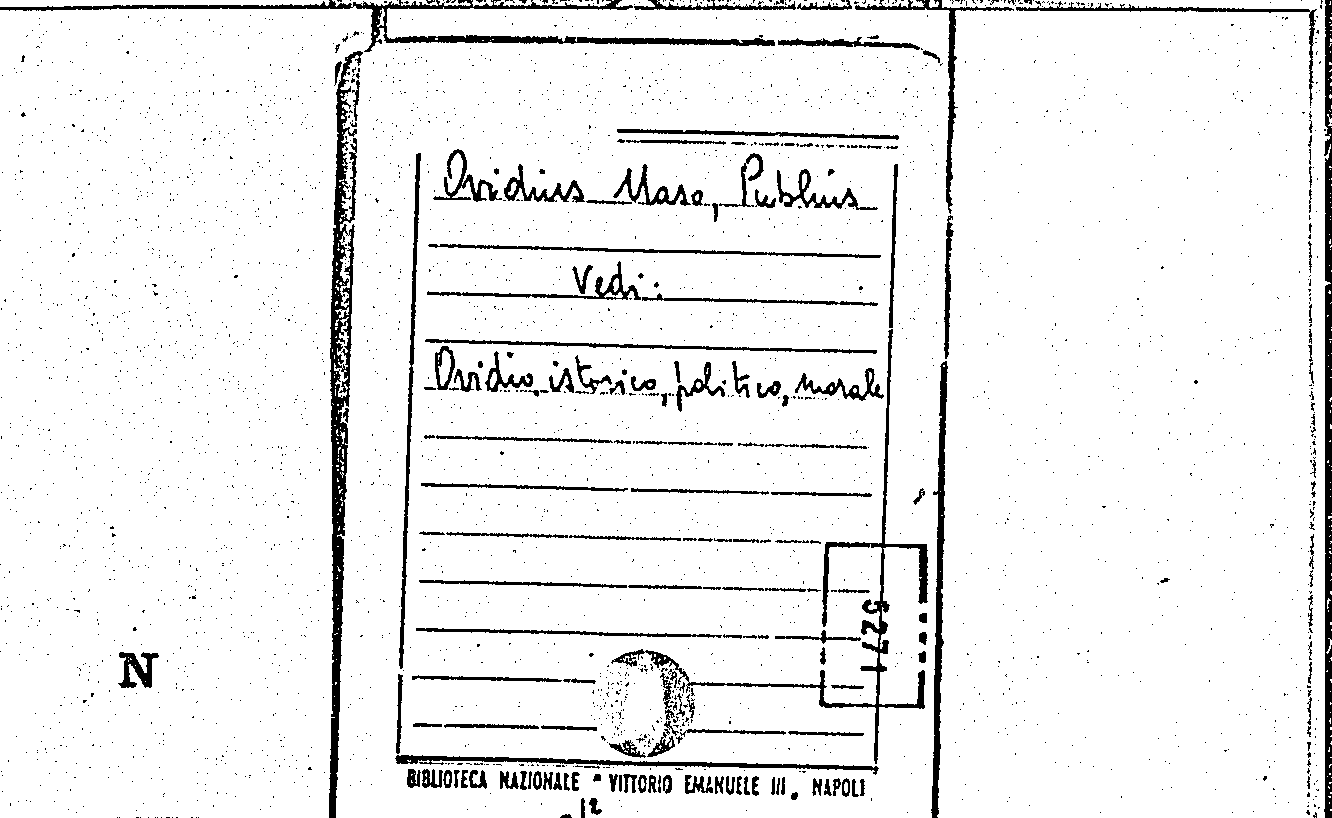 Ovidius Naso, Publius
Vedi:
Ovidio istorico, politico, morale
5271
N
BIBLIOTECA NAZIONALE " VITTORIO EMANUELE III. NAPOLI